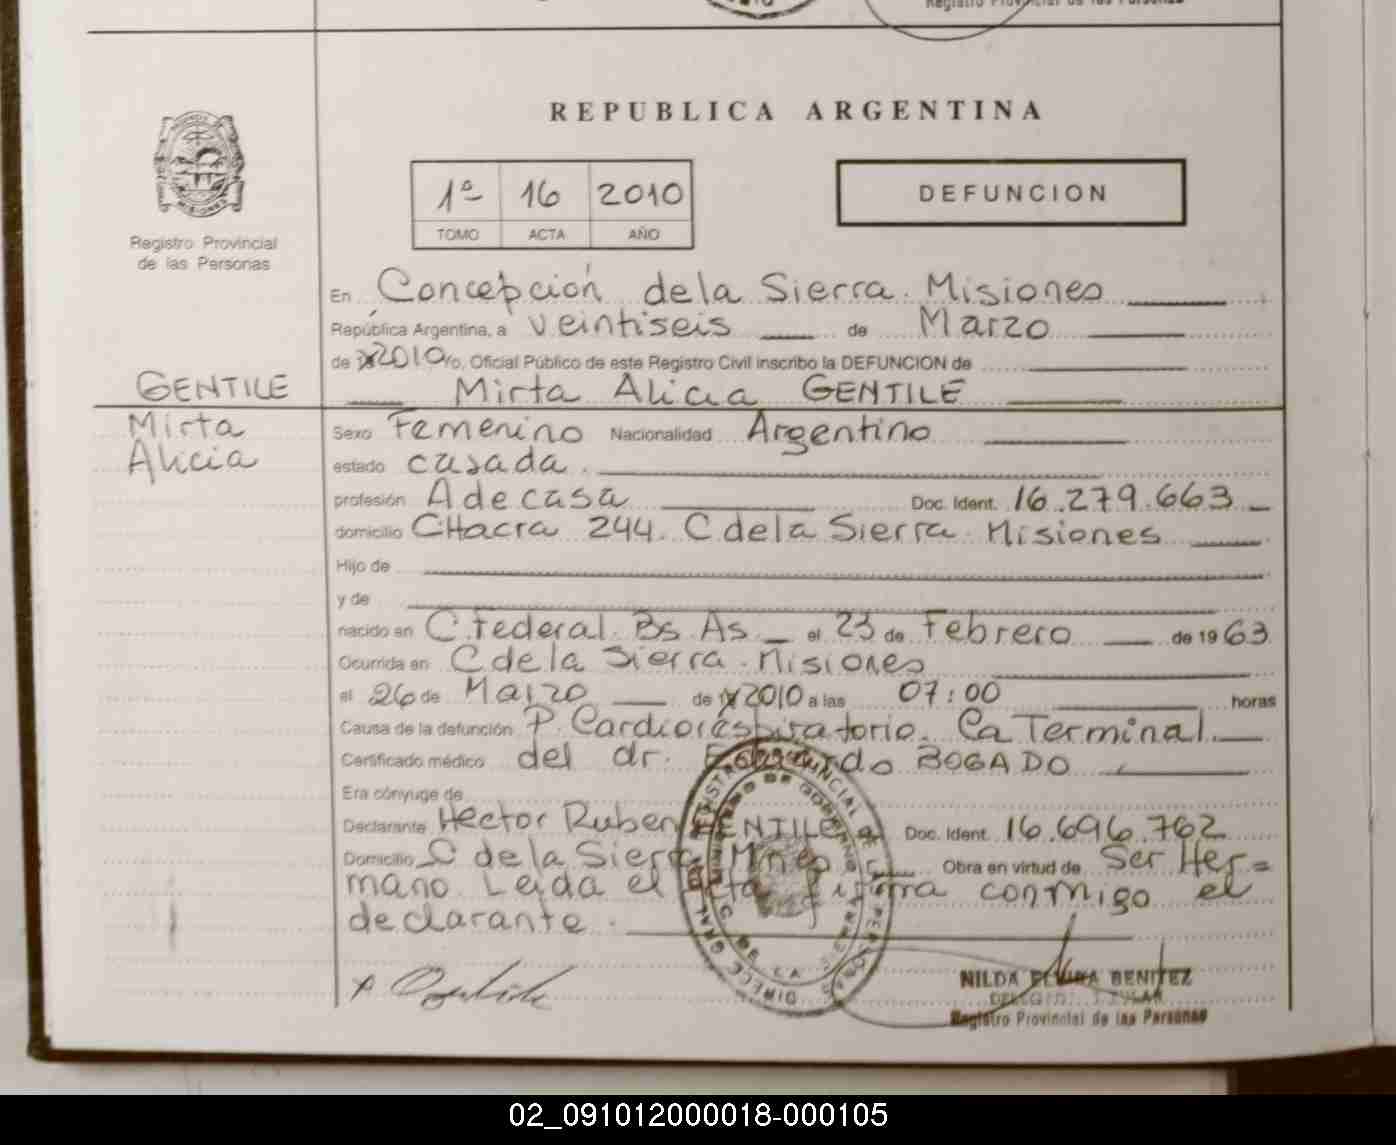 Registro Provincial de las Personas
REPUBLICA ARGENTINA
1º 16 2010
TOMO ACTA AÑO
DEFUNCION
Registro Provincial
de las Personas
En Concepción de la Sierra. Misiones
República Argentina, a veintiseis de Marzo
de 2010 Yo, Oficial Público de este Registro Civil inscribo la DEFUNCION de
GENTILE
Mirta Alicia GENTILE
Mirta
Alicia
Sexo Femenino Nacionalidad Argentino
estado casada.
profesión A de casa Doc. Ident. 16.279.663
domicilio CHacra 244. C de la Sierra. Misiones
Hijo de
y de
nacido en C. Federal. Bs As el 23 de Febrero de 1963
Ocurrida en C de la Sierra. Misiones
el 26 de Marzo de 2010 a las 07:00 horas
Causa de la defunción P. Cardiorespiratorio. Ca Terminal.
Certificado médico del dr. BOGADO
Era cónyuge de
Declarante Hector Ruben GENTILE Doc. Ident. 16.696.762
Domicilio C de la Sierra Mnes Obra en virtud de Ser Her=
mano. Leida el Acta firma conmigo el
declarante.
NILDA ELVIRA BENITEZ
Registro Provincial de las Personas
02_091012000018-000105